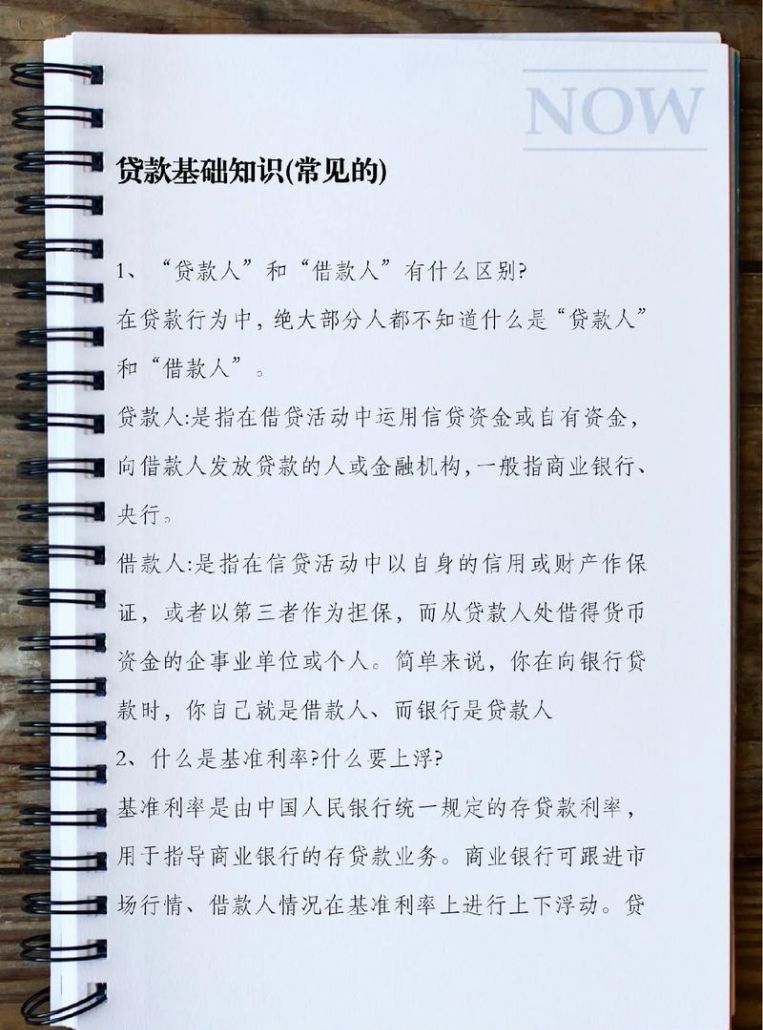 NOW
贷款基础知识(常见的)
1、“贷款人”和“借款人”有什么区别?
在贷款行为中,绝大部分人都不知道什么是“贷款人”
和“借款人”。
贷款人:是指在借贷活动中运用信贷资金或自有资金，
向借款人发放贷款的人或金融机构,一般指商业银行、
央行。
借款人:是指在信贷活动中以自身的信用或财产作保
证，或者以第三者作为担保，而从贷款人处借得货币
资金的企事业单位或个人。简单来说，你在向银行贷
款时，你自己就是借款人、而银行是贷款人
2、什么是基准利率?什么要上浮?
基准利率是由中国人民银行统一规定的存贷款利率，
用于指导商业银行的存贷款业务。商业银行可跟进市
场行情、借款人情况在基准利率上进行上下浮动。贷